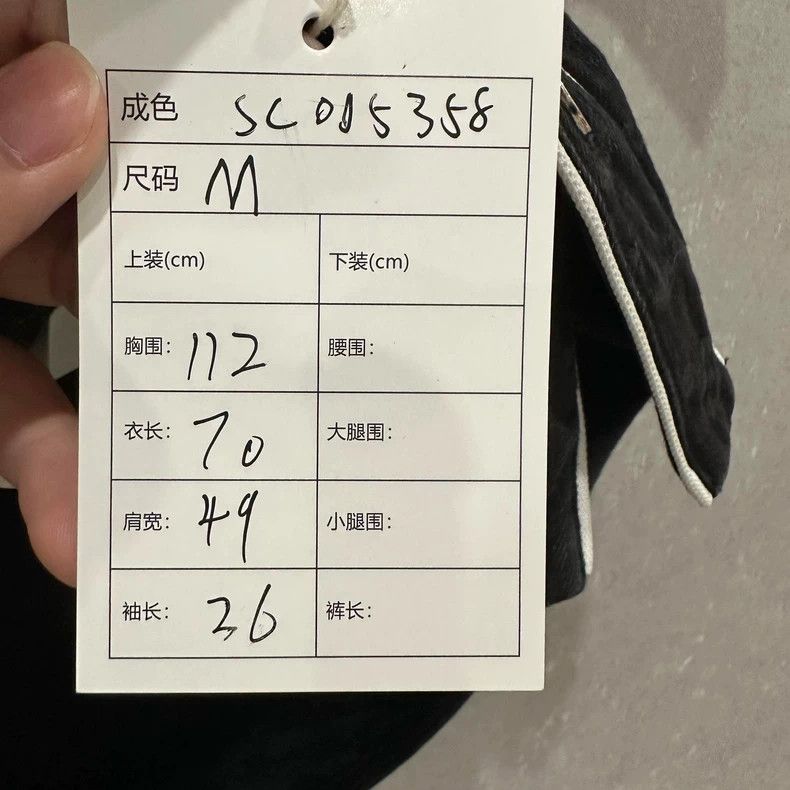 成色 SC015358
尺码 M
上装(cm) 下装(cm)
胸围: 112 腰围:
衣长: 70 大腿围:
肩宽: 49 小腿围:
袖长: 26 裤长: